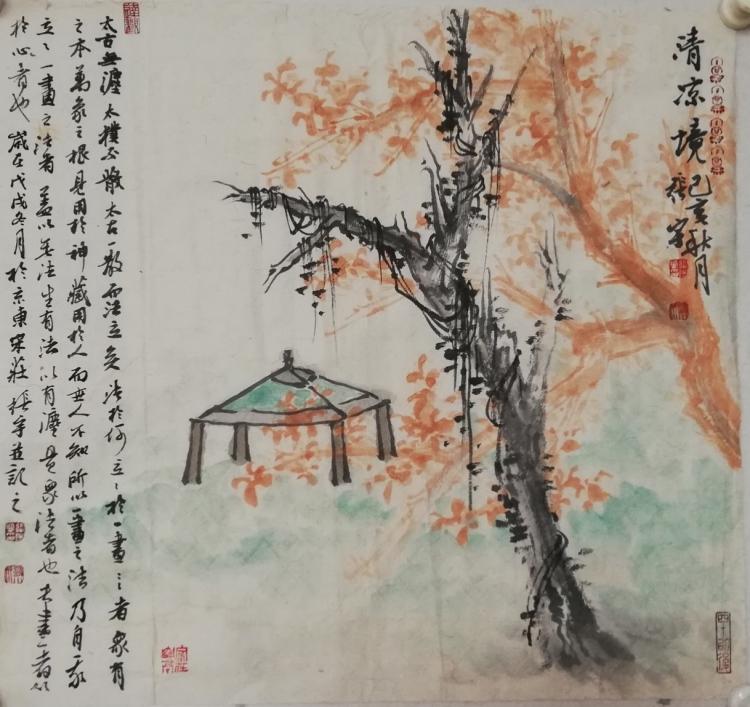 清凉境
己亥秋月
張宇
太古無灋太樸不散太古一散而法立矣法於何立〻於一畫〻〻者眾有
之本萬象之根見用於神藏用於人而世人不知所以一畫之法乃自我
立〻一畫之法者蓋以無法生有法以有灋貫眾法者也夫畫者從
於心者也歲在戊戌冬月於京東宋莊張宇並記之